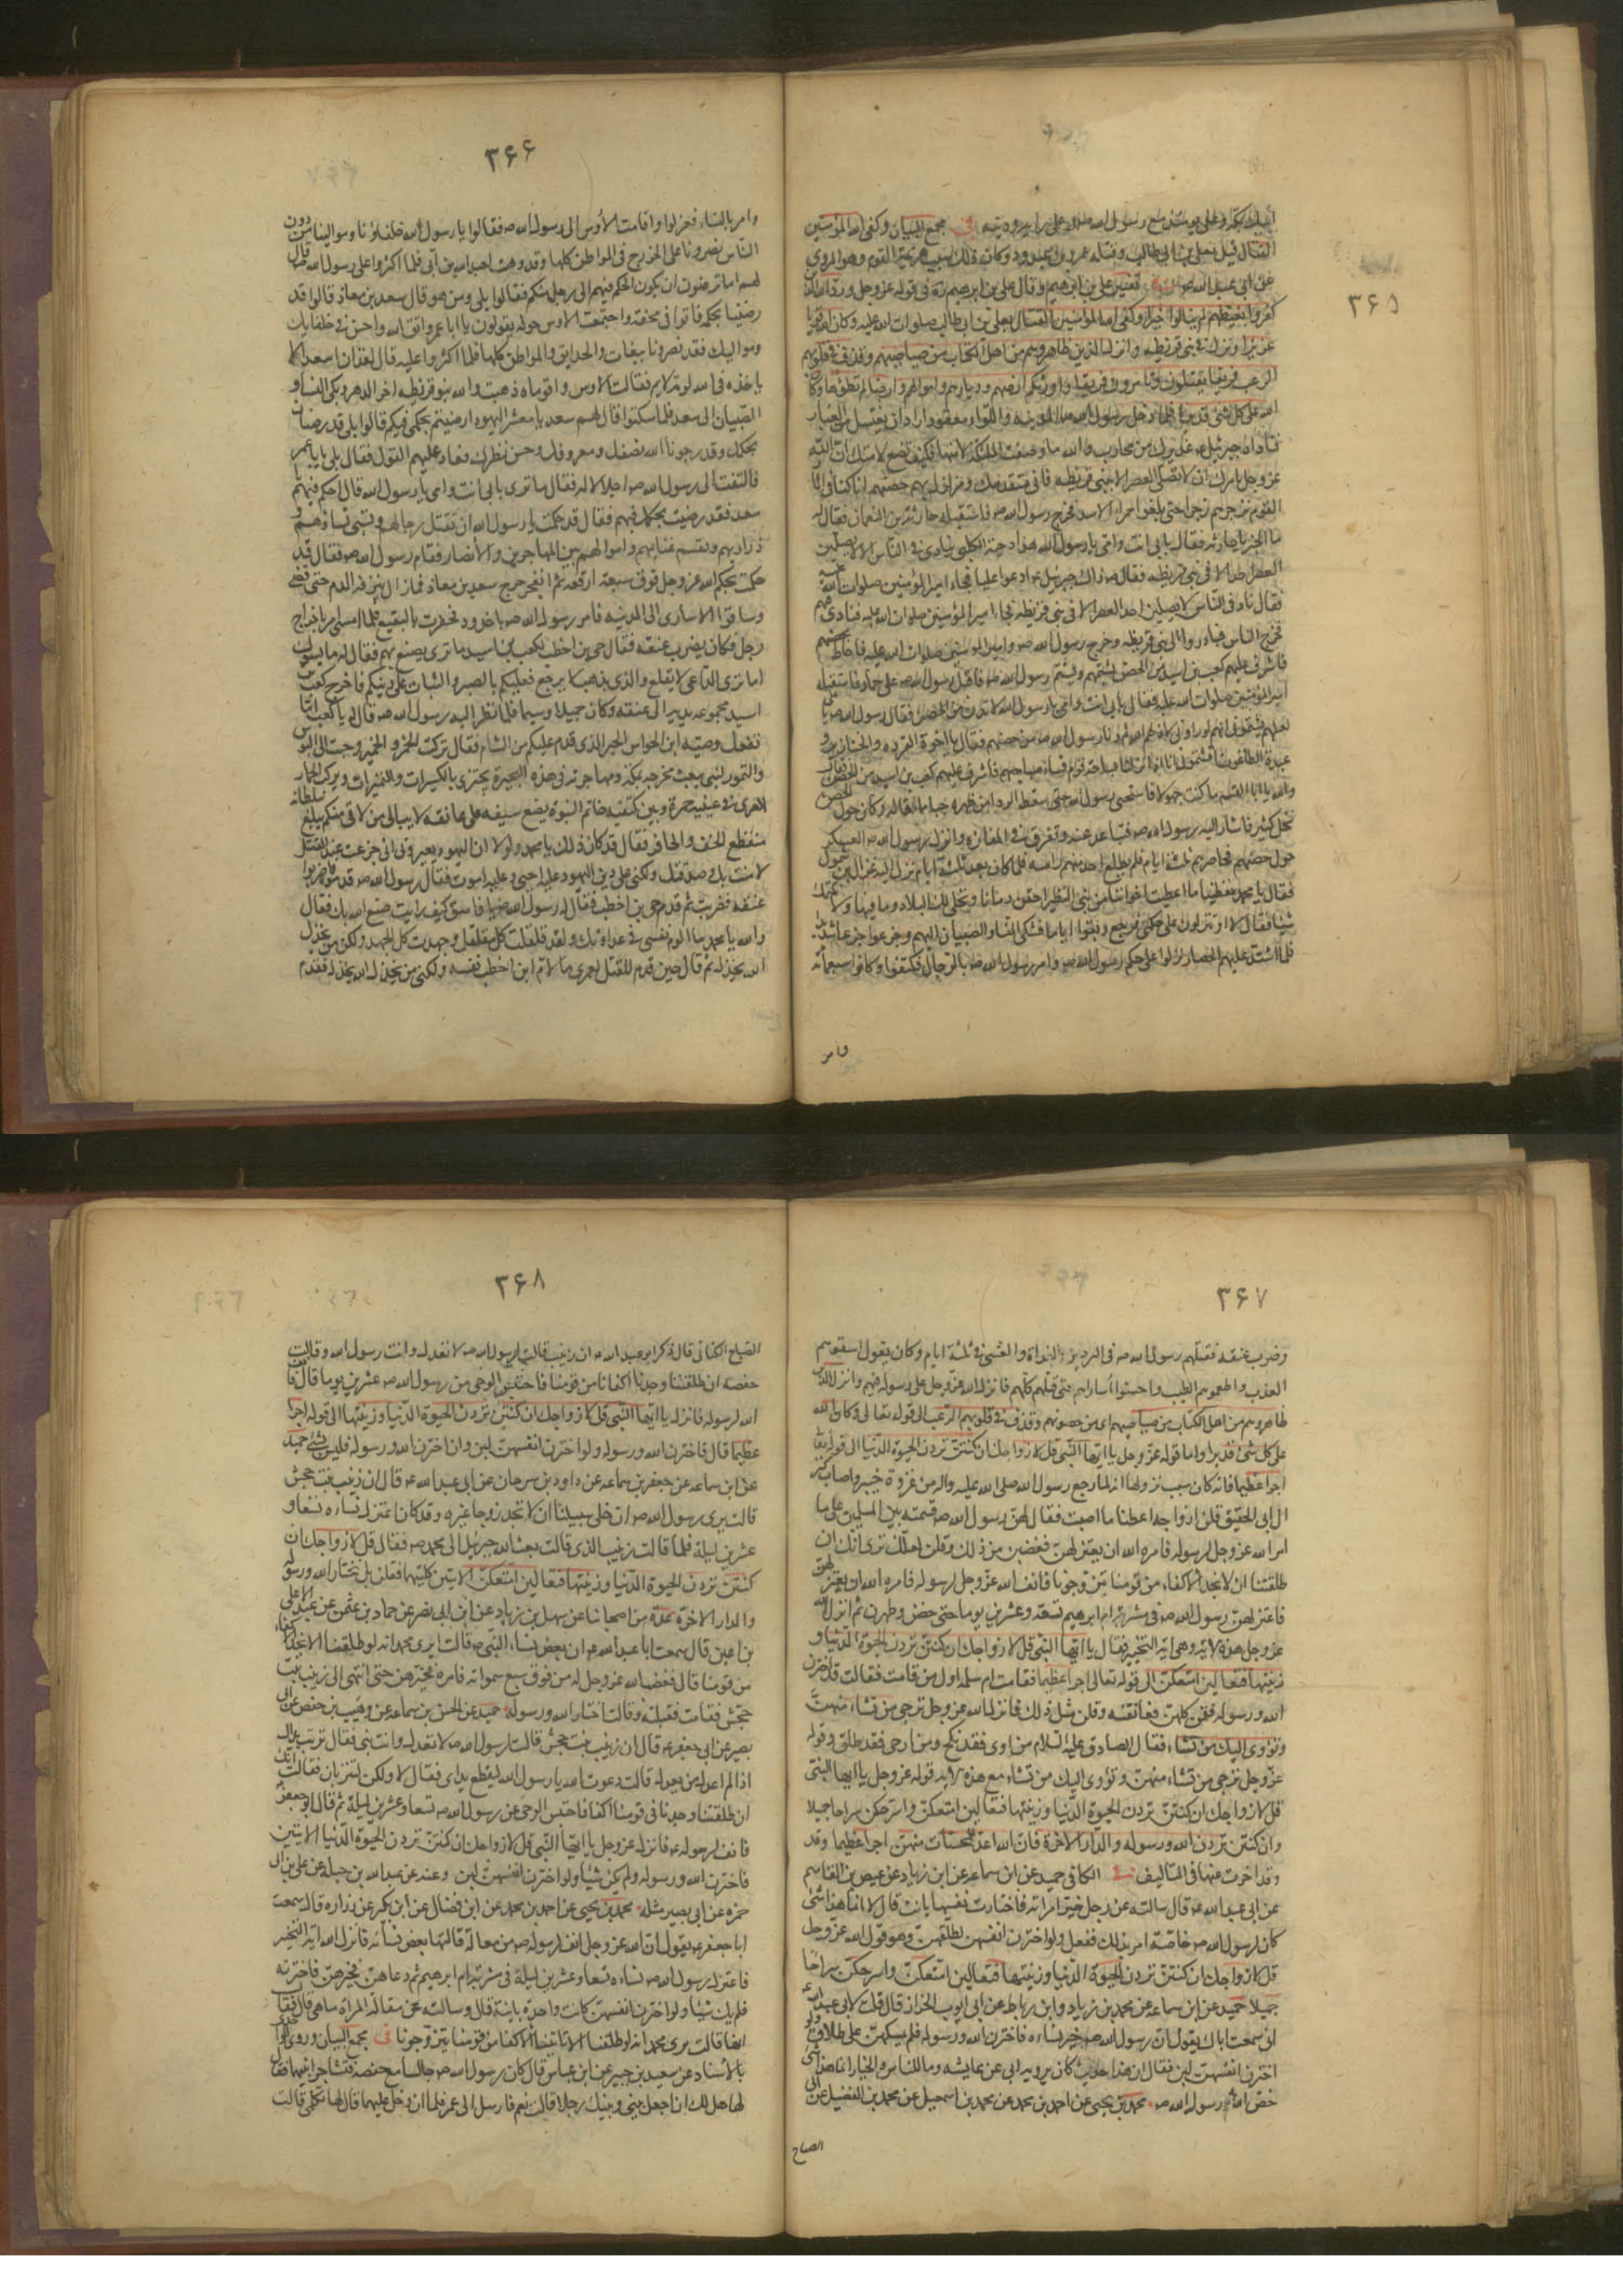 ۳۶۵
عن ابى عبد الله تفسير على بن ابرهيم وقال على بن ابرهيم ره فى قوله عز وجل ورد الله الذين
كفروا بغيظهم لم ينالوا خيرا وكفى الله المؤمنين القتال بعلى بن ابى طالب صلوات الله عليه وكان الله قويا
عزيزا ونزل فى بنى قريظه وانزل الذين ظاهروهم من اهل الكتاب من صياصيهم وقذف فى قلوبهم
الرعب فريقا تقتلون وتاسرون فريقا واورثكم ارضهم وديارهم واموالهم وارضا لم تطؤها وكان
الله على كل شئ قديرا فلما دخل رسول الله صه المدينه واللواء معقود اراد ان يغتسل من الغبار
فناداه جبرئيل عذيرك من محارب والله ما وضعت الملئكة لامتها فكيف تضع لامتك ان الله
عز وجل يامرك ان لا تصلى العصر الا ببنى قريظه فانى متقدمك ومزلزل بهم حصنهم انا كنا فى اثار
القوم نزجرهم زجرا حتى بلغوا حمراء الاسد فخرج رسول الله صه فاستقبله حارثة بن النعمان فقال له
ما الخبر يا حارثه فقال بابى انت وامى يا رسول الله هذا دحية الكلبى ينادى فى الناس الا لا يصلين
العصر احد الا فى بنى قريظه فقال صه ذاك جبرئيل ادعوا عليا فجاء امير المؤمنين صلوات الله عليه
فقال ناد فى الناس لا يصلين احد العصر الا فى بنى قريظه فجاء امير المؤمنين صلوات الله عليه فنادى فيهم
فخرج الناس فبادروا الى بنى قريظه وخرج رسول الله صه وامير المؤمنين صلوات الله عليه
فاشرف عليهم كعب بن اسيد من الحصن يشتمهم ويشتم رسول الله صه فاقبل رسول الله صه على حمار فاستقبله
امير المؤمنين صلوات الله عليه فقال بابى انت وامى يا رسول الله لا تدن من الحصن فقال رسول الله صه يا على
حول حصنهم فحاصرهم ثلثة ايام فلم يطلع احد منهم راسه فلما كان بعد ثلثة ايام نزل اليه غزال بن شمول
فقال يا محمد تعطينا ما اعطيت اخواننا من بنى النظير احقن دمائنا ونخلى لك البلاد وما فيها ولا نكتمك
شيئا فقال لا او تنزلون على حكمى فرجع وبقوا اياما فبكى النساء والصبيان اليهم وجزعوا جزعا شديدا
فلما اشتد عليهم الحصار نزلوا على حكم رسول الله صه وامر رسول الله صه بالرجال فكتفوا وكانوا سبعمائه
وامر
۳۶۶
وامر بالنساء فعزلوا وقامت الاوس الى رسول الله صه فقالوا يا رسول الله حلفاؤنا وموالينا من دون
الناس نصرونا على الخزرج فى المواطن كلها وقد وهبت لعبد الله بن ابى فلما اكثروا على رسول الله صه قال
لهم اما ترضون ان يكون الحكم فيهم الى رجل منكم فقالوا بلى ومن هو قال سعد بن معاذ قالوا قد
رضينا بحكمه فاتوا فى محفة واجتمعت الاوس حوله يقولون يا ابا عمرو اتق الله واحسن فى حلفائك
ومواليك فقد نصرونا ببغاث والحدايق والمواطن كلها فلما اكثروا عليه قال لقد ان لسعد ان لا
ياخذه فى الله لومة لايم فقالت الاوس واقوماه ذهبت والله بنو قريظه اخر الدهر وبكى النساء و
الصبيان الى سعد فلما سكتوا قال لهم سعد يا معشر اليهود ارضيتم بحكمى فيكم قالوا بلى قد رضينا
بحكمك وقد رجونا الله نصفك ومعروفك وحسن نظرك فعاد عليهم القول فقال بلى يا با عمرو
فالتفت الى رسول الله صه اجلالا له فقال ما ترى بابى انت وامى يا رسول الله قال احكم فيهم يا
سعد فقد رضيت بحكمك فيهم فقال قد حكمت يا رسول الله ان تقتل رجالهم وتسبى نساؤهم و
ذراريهم وتقسم غنايمهم واموالهم بين المهاجرين والانصار فقام رسول الله صه فقال قد
حكمت بحكم الله عز وجل فوق سبعة ارقعة ثم انفجر جرح سعد بن معاذ فما زال ينزفه الدم حتى قضى
وساقوا الاسارى الى المدينه فامر رسول الله صه باخدود فحفرت بالبقيع فلما امسى امر باخراج
رجل فكان يضرب عنقه فقال حى بن اخطب لكعب بن اسيد ما ترى يصنع بهم فقال له ما يسوؤك
اما ترى الداعى لا يقلع والذى يذهب لا يرجع فعليكم بالصبر والثبات على دينكم فاخرج كعب بن
اسيد مجموعه يديه الى عنقه وكان جميلا وسيما فلما نظر اليه رسول الله صه قال له يا كعب اما
نفعك وصيه ابن الحواس الحبر الذى قدم عليكم من الشام فقال تركت الخمر والخمير وجئت الى البؤس
والتمور لنبى يبعث مخرجه بمكة ومهاجرته فى هذه البحيرة يجتزى بالكسيرات والتميرات ويركب الحمار
العرى فى عينيه حمرة وبين كتفيه خاتم النبوة يضع سيفه على عاتقه لا يبالى من لاقى منكم يبلغ سلطانه
منقطع الخف والحافر فقال قد كان ذلك يا محمد ولولا ان اليهود يعيرونى انى جزعت عند القتل
لامنت بك وصدقتك ولكنى على دين اليهود عليه احيى وعليه اموت فقال رسول الله صه قدموه فاضربوا
عنقه فضربت ثم قدم حى بن اخطب فقال له رسول الله صه يا فاسق كيف رايت صنع الله بك فقال
والله يا محمد ما الوم نفسى فى عداوتك ولقد قلقلت كل مقلقل وجهدت كل الجهد ولكن من يخذل
الله يخذله ثم قال حين قدم للقتل لعمرى ما لام ابن اخطب نفسه ولكنه من يخذل الله يخذله فقدم
۳۶۷
وضرب عنقه فقتلهم رسول الله صه فى البردين بالغداة والعشى فى ثلثة ايام وكان يقول اسقوهم
العذب واطعموهم الطيب واحسنوا اساراهم حتى قتلهم كلهم فانزل الله عز وجل على رسوله فيهم وانزل الذين
ظاهروهم من اهل الكتاب من صياصيهم اى من حصونهم وقذف فى قلوبهم الرعب الى قوله تعالى وكان الله
على كل شئ قديرا واما قوله عز وجل يا ايها النبى قل لازواجك ان كنتن تردن الحيوة الدنيا الى قوله تعالى
اجرا عظيما فانه كان سبب نزولها انه لما رجع رسول الله صلى الله عليه واله من غزوة خيبر واصاب كنز
ال ابى الحقيق قلن ازواجه اعطنا ما اصبت فقال لهن رسول الله صه قسمته بين المسلمين على ما
امر الله عز وجل فغضبن من ذلك وقلن لعلك ترى انك ان
طلقتنا ان لا نجد الاكفاء من قومنا يتزوجونا فانف الله عز وجل لرسوله فامره الله ان يعتزلهن
فاعتزلهن رسول الله صه فى مشربة ام ابرهيم تسعه وعشرين يوما حتى حضن وطهرن ثم انزل الله
عز وجل هذه الايه وهى ايه التخيير فقال يا ايها النبى قل لازواجك ان كنتن تردن الحيوة الدنيا و
زينتها فتعالين امتعكن الى قوله تعالى اجرا عظيما فقامت ام سلمه اول من قامت فقالت قد اخترت
الله ورسوله فقمن كلهن فعانقنه وقلن مثل ذلك فانزل الله عز وجل ترجى من تشاء منهن
وتؤوى اليك من تشاء فقال الصادق عليه السلام من اوى فقد نكح ومن ارجى فقد طلق وقوله
عز وجل ترجى من تشاء منهن وتؤوى اليك من تشاء مع هذه الايه قوله عز وجل يا ايها النبى
قل لازواجك ان كنتن تردن الحيوة الدنيا وزينتها فتعالين امتعكن واسرحكن سراحا جميلا
وان كنتن تردن الله ورسوله والدار الاخرة فان الله اعد للمحسنات منكن اجرا عظيما وقد
وقد اخرت عنها فى التاليف فى الكافى حميد عن ابن سماعه عن ابن زياد عن عيص بن القاسم
عن ابى عبد الله عه قال سالته عن رجل خير امراته فاختارت نفسها بانت قال لا انما هذا شئ
كان لرسول الله صه خاصة امر بذلك ففعل ولو اخترن انفسهن لطلقهن وهو قول الله عز وجل
قل لازواجك ان كنتن تردن الحيوة الدنيا وزينتها فتعالين امتعكن واسرحكن سراحا
جميلا حميد عن ابن سماعه عن محمد بن زياد وابن رباط عن ابى ايوب الخزاز قال قلت لابى عبد الله عه
انى سمعت اباك يقول ان رسول الله صه خير نساءه فاخترن الله ورسوله فلم يمسكهن على طلاق ولو
اخترن انفسهن لبن فقال ان هذا حديث كان يرويه ابى عن عايشه وما للناس والخيار انما هذا شئ
خص الله به رسول الله صه محمد بن يحيى عن احمد بن محمد عن محمد بن اسمعيل عن محمد بن الفضيل عن ابى
الصباح
۳۶۸
الصباح الكنانى قال ذكر ابو عبد الله عه ان زينب قالت لرسول الله صه لا تعدل وانت رسول الله وقالت
حفصه ان طلقتنا وجدنا اكفائنا من قومنا فاحتبس الوحى من رسول الله صه عشرين يوما قال فانف
الله لرسوله فانزل يا ايها النبى قل لازواجك ان كنتن تردن الحيوة الدنيا وزينتها الى قوله اجرا
عظيما قال فاخترن الله ورسوله ولو اخترن انفسهن لبن وان اخترن الله ورسوله فليس بشئ حميد
عن ابن سماعه عن جعفر بن سماعه عن داود بن سرحان عن ابى عبد الله عه قال ان زينب بنت جحش
قالت يرى رسول الله صه ان خلى سبيلنا ان لا نجد زوجا غيره وقد كان اعتزل نساءه تسعا و
عشرين ليلة فلما قالت زينب الذى قالت بعث الله جبرئيل الى محمد صه فقال قل لازواجك ان
كنتن تردن الحيوة الدنيا وزينتها فتعالين امتعكن الايتين كلتيهما فقلن بل نختار الله ورسوله
والدار الاخره عدة من اصحابنا عن سهل بن زياد عن ابن ابى نصر عن حماد بن عثمن عن عبد الاعلى
بن اعين قال سمعت ابا عبد الله عه ان بعض نساء النبى صه قالت ايرى محمد انه لو طلقنا الا نجد اكفاء
من قومنا قال فغضب الله عز وجل له من فوق سبع سمواته فامره فخيرهن حتى انتهى الى زينب بنت
جحش فقامت فقبلته وقالت اختار الله ورسوله حميد عن الحسن بن سماعه عن وهيب بن حفص عن ابى
بصير عن ابى جعفر عه قال ان زينب بنت جحش قالت لرسول الله صه لا تعدل وانت نبى فقال تربت يداك
اذا لم اعدل فمن يعدل قالت دعوت الله يا رسول الله ليقطع يداى فقال لا ولكن لتتربان فقالت انك
ان طلقتنا وجدنا فى قومنا اكفاءنا فاحتبس الوحى عن رسول الله صه تسعا وعشرين ليلة ثم قال ابو جعفر
فانف لرسوله عه فانزل عز وجل يا ايها النبى قل لازواجك ان كنتن تردن الحيوة الدنيا الايتين
فاخترن الله ورسوله ولم يكن شيئا ولو اخترن انفسهن لبن وعنه عن عبد الله بن جبله عن على بن ابى
حمزه عن ابى بصير مثله محمد بن يحيى عن احمد بن محمد عن ابن فضال عن ابن بكير عن زراره قال سمعت
ابا جعفر عه يقول ان الله عز وجل انف لرسوله صه من مقالة قالتها بعض نسائه فانزل الله اية التخيير
فاعتزل رسول الله صه نساءه تسعا وعشرين ليلة فى مشربة ام ابرهيم ثم دعاهن فخيرهن فاخترنه
فلم يك شيئا ولو اخترن انفسهن كانت واحدة باينة قال وسالته عن مقالة المراة ما هى قال فقال
انها قالت يرى محمد انه لو طلقنا الا تاتينا الاكفاء من قومنا يتزوجونا فى مجمع البيان وروى الواحدى
بالاسناد عن سعيد بن جبير عن ابن عباس قال كان رسول الله صه جالسا مع حفصه فتشاجرا بينهما فقال
لها هل لك ان اجعل بينى وبينك رجلا قالت نعم فارسل الى عمر فلما ان دخل عليهما قال لها تكلمى قالت